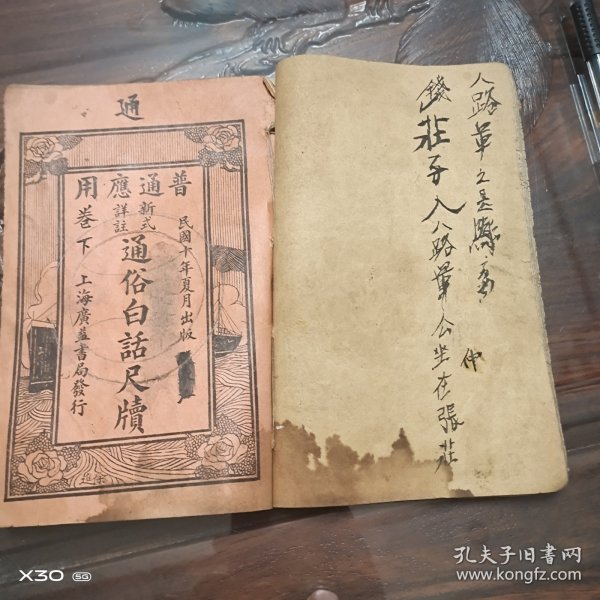 通
普通應用
新式
詳註
卷下
民國十年夏月出版
通俗白話尺牘
上海廣益書局發行
八路軍之是
錢莊子入八路軍公坐在張莊
仲
X30 5G
孔夫子旧书网
www.kongfz.com